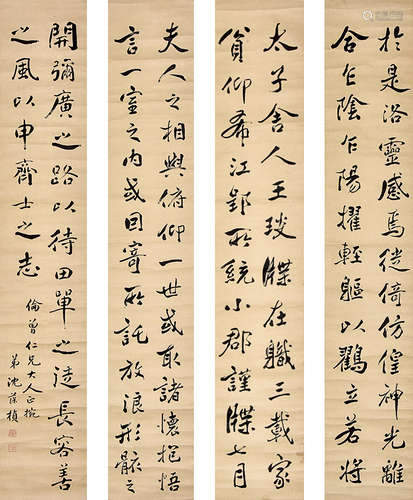 於是洛靈感焉徙倚仿偟神光離
合乍陰乍陽擢輕軀以鶴立若將
太子舍人王琰牒在職三載家
貧仰希江郢所統小郡謹牒七月
夫人之相與俯仰一世或取諸懷抱悟
言一室之內或因寄所託放浪形骸之
開彌廣之路以待田單之徒長容善
之風以申齊士之志
倫曾仁兄大人正
弟沈葆楨